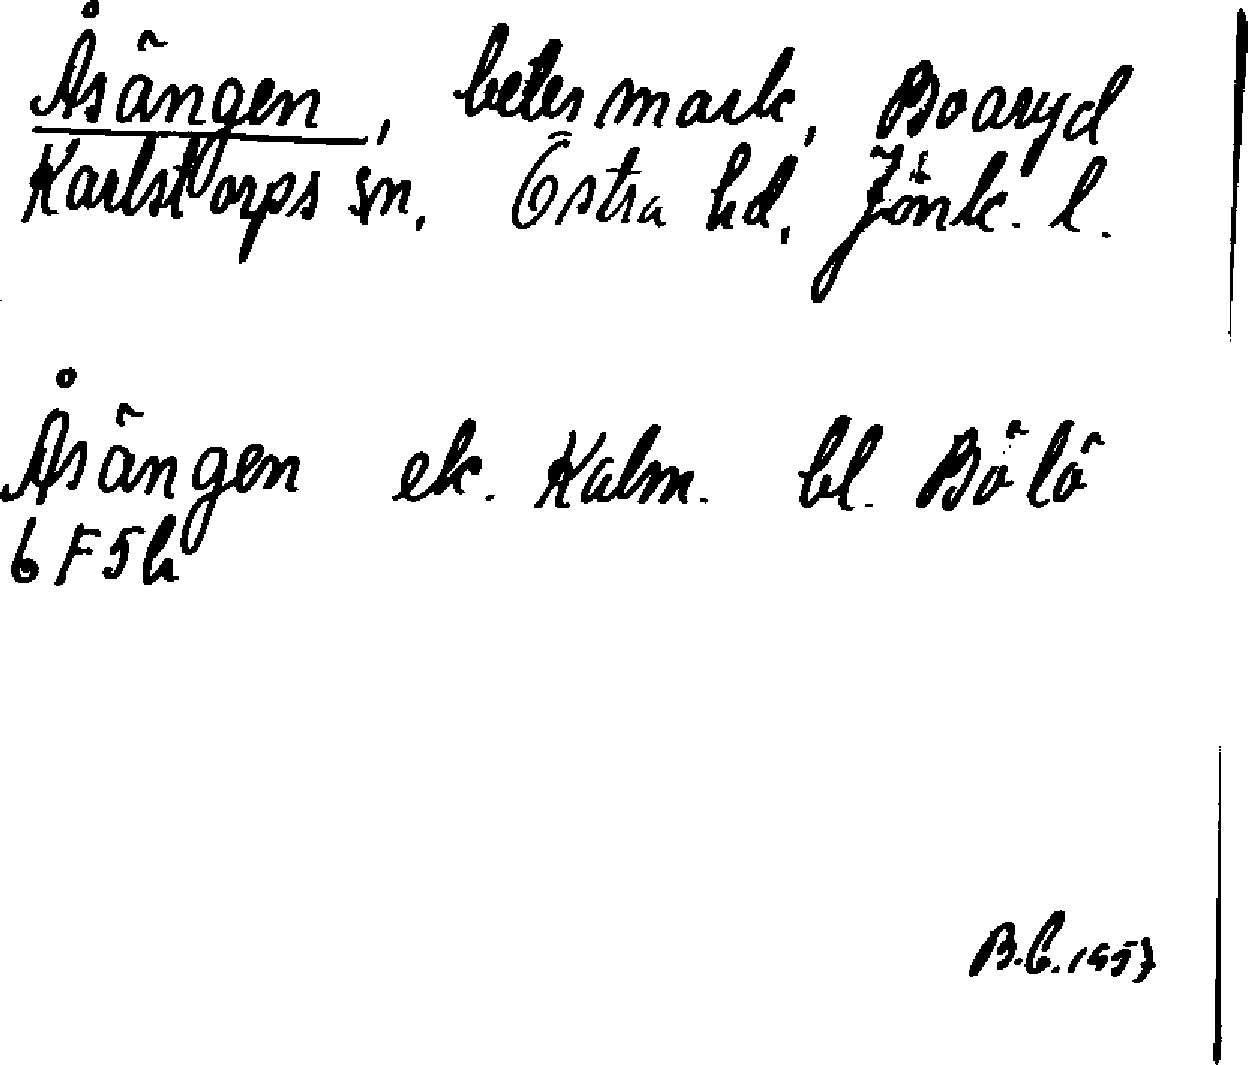 Åsängen, betesmark, Boaryd
Karlstorps sn. Östra hd. Jönk. l.
Åsängen ek. Kalm. bl. Bölö
6F5h
B.C. 1957